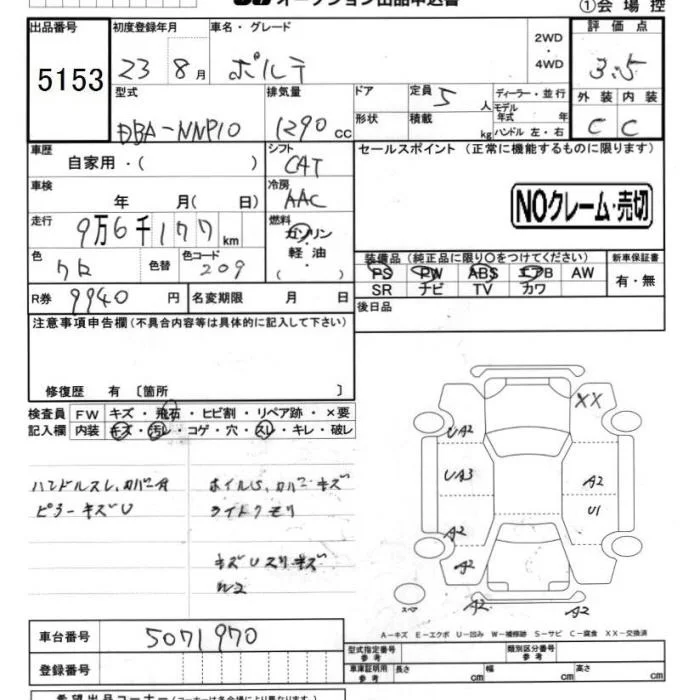 ①会場控
出品番号 初度登録年月 車名・グレード 2WD・4WD 評価点
5153 23 8月 ポルテ 3.5
型式 排気量 ドア 定員 5人 ディーラー・並行 外装 内装
DBA-NNP10 1290 cc 形状 積載 kg モデル年式 年 ハンドル 左・右 C C
車歴 シフト セールスポイント(正常に機能するものに限ります)
自家用・( ) CAT
車検 年 月( 日) 冷房 AAC
NOクレーム・売切
走行 9万6千177km 燃料 ガソリン・軽油・( )
色 クロ 色替 色コード 209
装備品(純正品に限り〇をつけてください) 新車保証書
PS PW ABS エアB AW 有・無
SR ナビ TV カワ
R券 9940円 名変期限 月 日 後日品
注意事項申告欄(不具合内容等は具体的に記入して下さい)
修復歴 有〔箇所 〕
検査員 FW キズ・飛石・ヒビ割・リペア跡・×要
記入欄 内装 キズ・汚レ・コゲ・穴・スレ・キレ・破レ
ハンドルスレ、カバー
ピラーキズU
カバーキズ
ライトクモリ
キズUスリキズ
XX
UA2
UA3
A2
U1
A2
A2
A2
A2
A2
スペア
A-キズ E-エクボ U-凹み W-補修跡 S-サビ C-腐食 XX-交換済
車台番号 5071970
型式指定番号 参考 類別区分番号 参考
登録番号
車庫証明用 参考 長さ cm 幅 cm 高さ cm